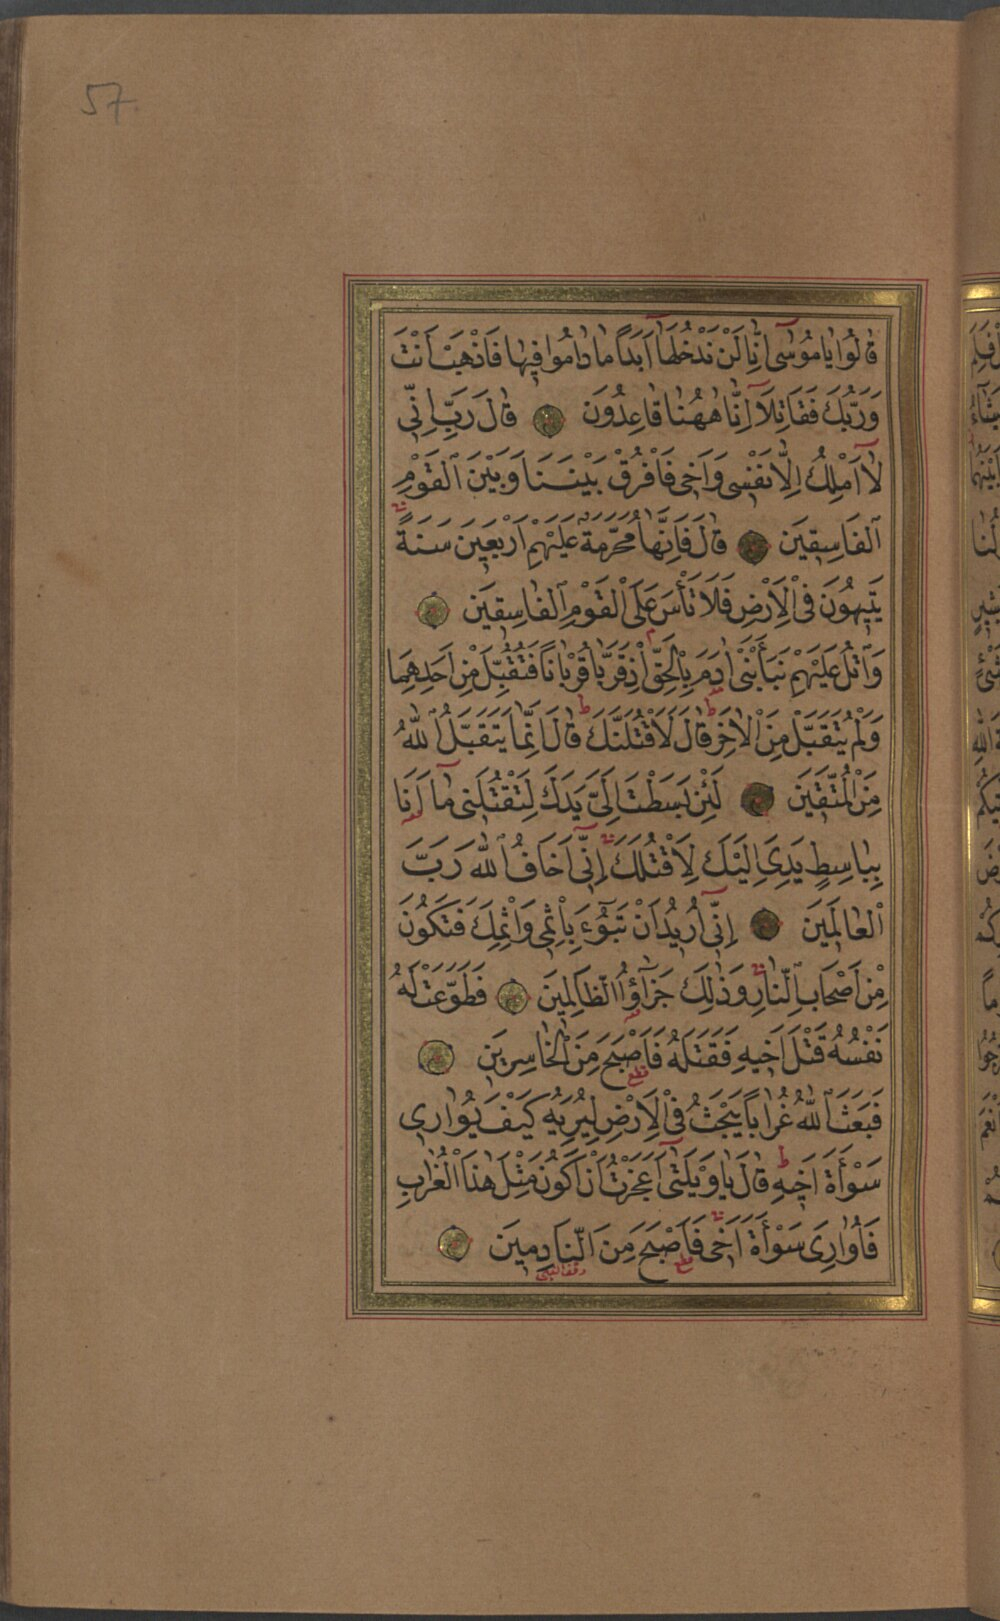 57.
قَالُوا يَامُوسَىٰ إِنَّا لَنْ نَدْخُلَهَا أَبَدًا مَا دَامُوا فِيهَا فَاذْهَبْ أَنْتَ
وَرَبُّكَ فَقَاتِلَا إِنَّا هٰهُنَا قَاعِدُونَ قَالَ رَبِّ إِنِّي
لَا أَمْلِكُ إِلَّا نَفْسِي وَأَخِي فَافْرُقْ بَيْنَنَا وَبَيْنَ الْقَوْمِ
الْفَاسِقِينَ قَالَ فَإِنَّهَا مُحَرَّمَةٌ عَلَيْهِمْ أَرْبَعِينَ سَنَةً
يَتِيهُونَ فِي الْأَرْضِ فَلَا تَأْسَ عَلَى الْقَوْمِ الْفَاسِقِينَ
وَاتْلُ عَلَيْهِمْ نَبَأَ ابْنَيْ اٰدَمَ بِالْحَقِّ إِذْ قَرَّبَا قُرْبَانًا فَتُقُبِّلَ مِنْ أَحَدِهِمَا
وَلَمْ يُتَقَبَّلْ مِنَ الْاٰخَرِ قَالَ لَأَقْتُلَنَّكَ قَالَ إِنَّمَا يَتَقَبَّلُ اللّٰهُ
مِنَ الْمُتَّقِينَ لَئِنْ بَسَطْتَ إِلَيَّ يَدَكَ لِتَقْتُلَنِي مَا أَنَا
بِبَاسِطٍ يَدِيَ إِلَيْكَ لِأَقْتُلَكَ إِنِّي أَخَافُ اللّٰهَ رَبَّ
الْعَالَمِينَ إِنِّي أُرِيدُ أَنْ تَبُوءَ بِإِثْمِي وَإِثْمِكَ فَتَكُونَ
مِنْ أَصْحَابِ النَّارِ وَذٰلِكَ جَزَاؤُا الظَّالِمِينَ فَطَوَّعَتْ لَهُ
نَفْسُهُ قَتْلَ أَخِيهِ فَقَتَلَهُ فَأَصْبَحَ مِنَ الْخَاسِرِينَ
فَبَعَثَ اللّٰهُ غُرَابًا يَبْحَثُ فِي الْأَرْضِ لِيُرِيَهُ كَيْفَ يُوَارِي
سَوْأَةَ أَخِيهِ قَالَ يَا وَيْلَتَىٰ أَعَجَزْتُ أَنْ أَكُونَ مِثْلَ هٰذَا الْغُرَابِ
فَأُوَارِيَ سَوْأَةَ أَخِي فَأَصْبَحَ مِنَ النَّادِمِينَ